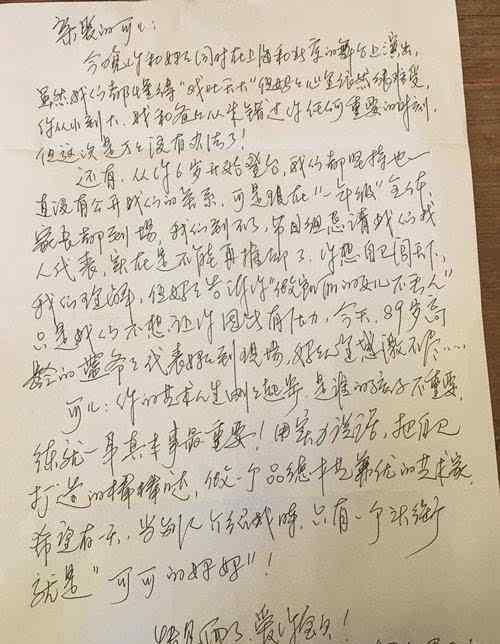 亲爱的可儿：
今晚你和妈妈同时在上海和北京的舞台上演出，
虽然我们都懂得"戏比天大"但妈妈心里依然很难受，
你从小到大、我和爸爸从未错过你任何重要的时刻，
但这次是真的没有办法了！
还有，从你6岁开始登台，我们都坚持也一
直没有公开我们的关系，可是现在"一年级"全体
家长都到场，我们到不了，节目组恳请我们找
人代表，实在是不能再推却了。你想自己闯天下，
我们理解，但妈妈告诉你"做我们的女儿不丢人"
只是我们不想让你因此有压力，今天，89岁高
龄的蓝爷爷代表妈妈到现场，妈妈感激不尽……
可儿：你的艺术人生刚刚起步，是谁的孩子不重要，
练就一身真本事最重要！用实力说话，把自己
打造的棒棒哒，做一个品德才艺兼优的艺术家，
希望有一天，当别人介绍我时，只有一个头衔
就是"可可的妈妈"！
爱你宝贝！